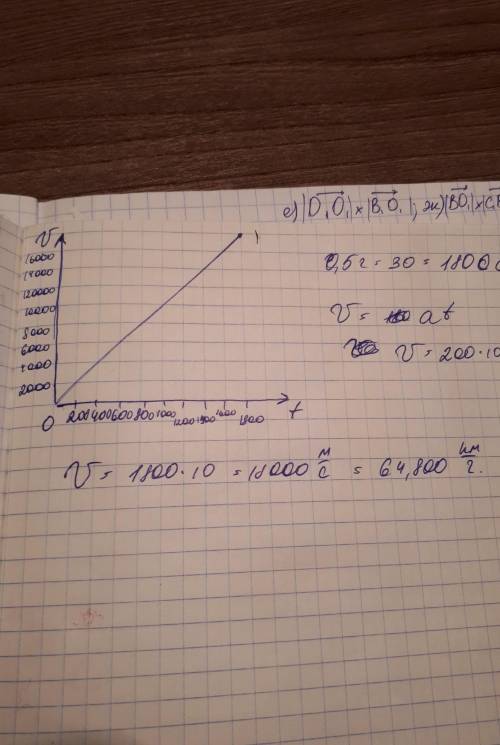 е) |D₁O₁| × |B₁O₁|; ж) |BO₁| ×
V
16000
14000
120000
10000
8000
6000
4000
2000
0
200 400 600 800 1000
1800
t
0,5 г = 30 = 1800 с
V = at
V = 200·10
V = 1800·10 = 18000 м/с = 64,800 км/г.